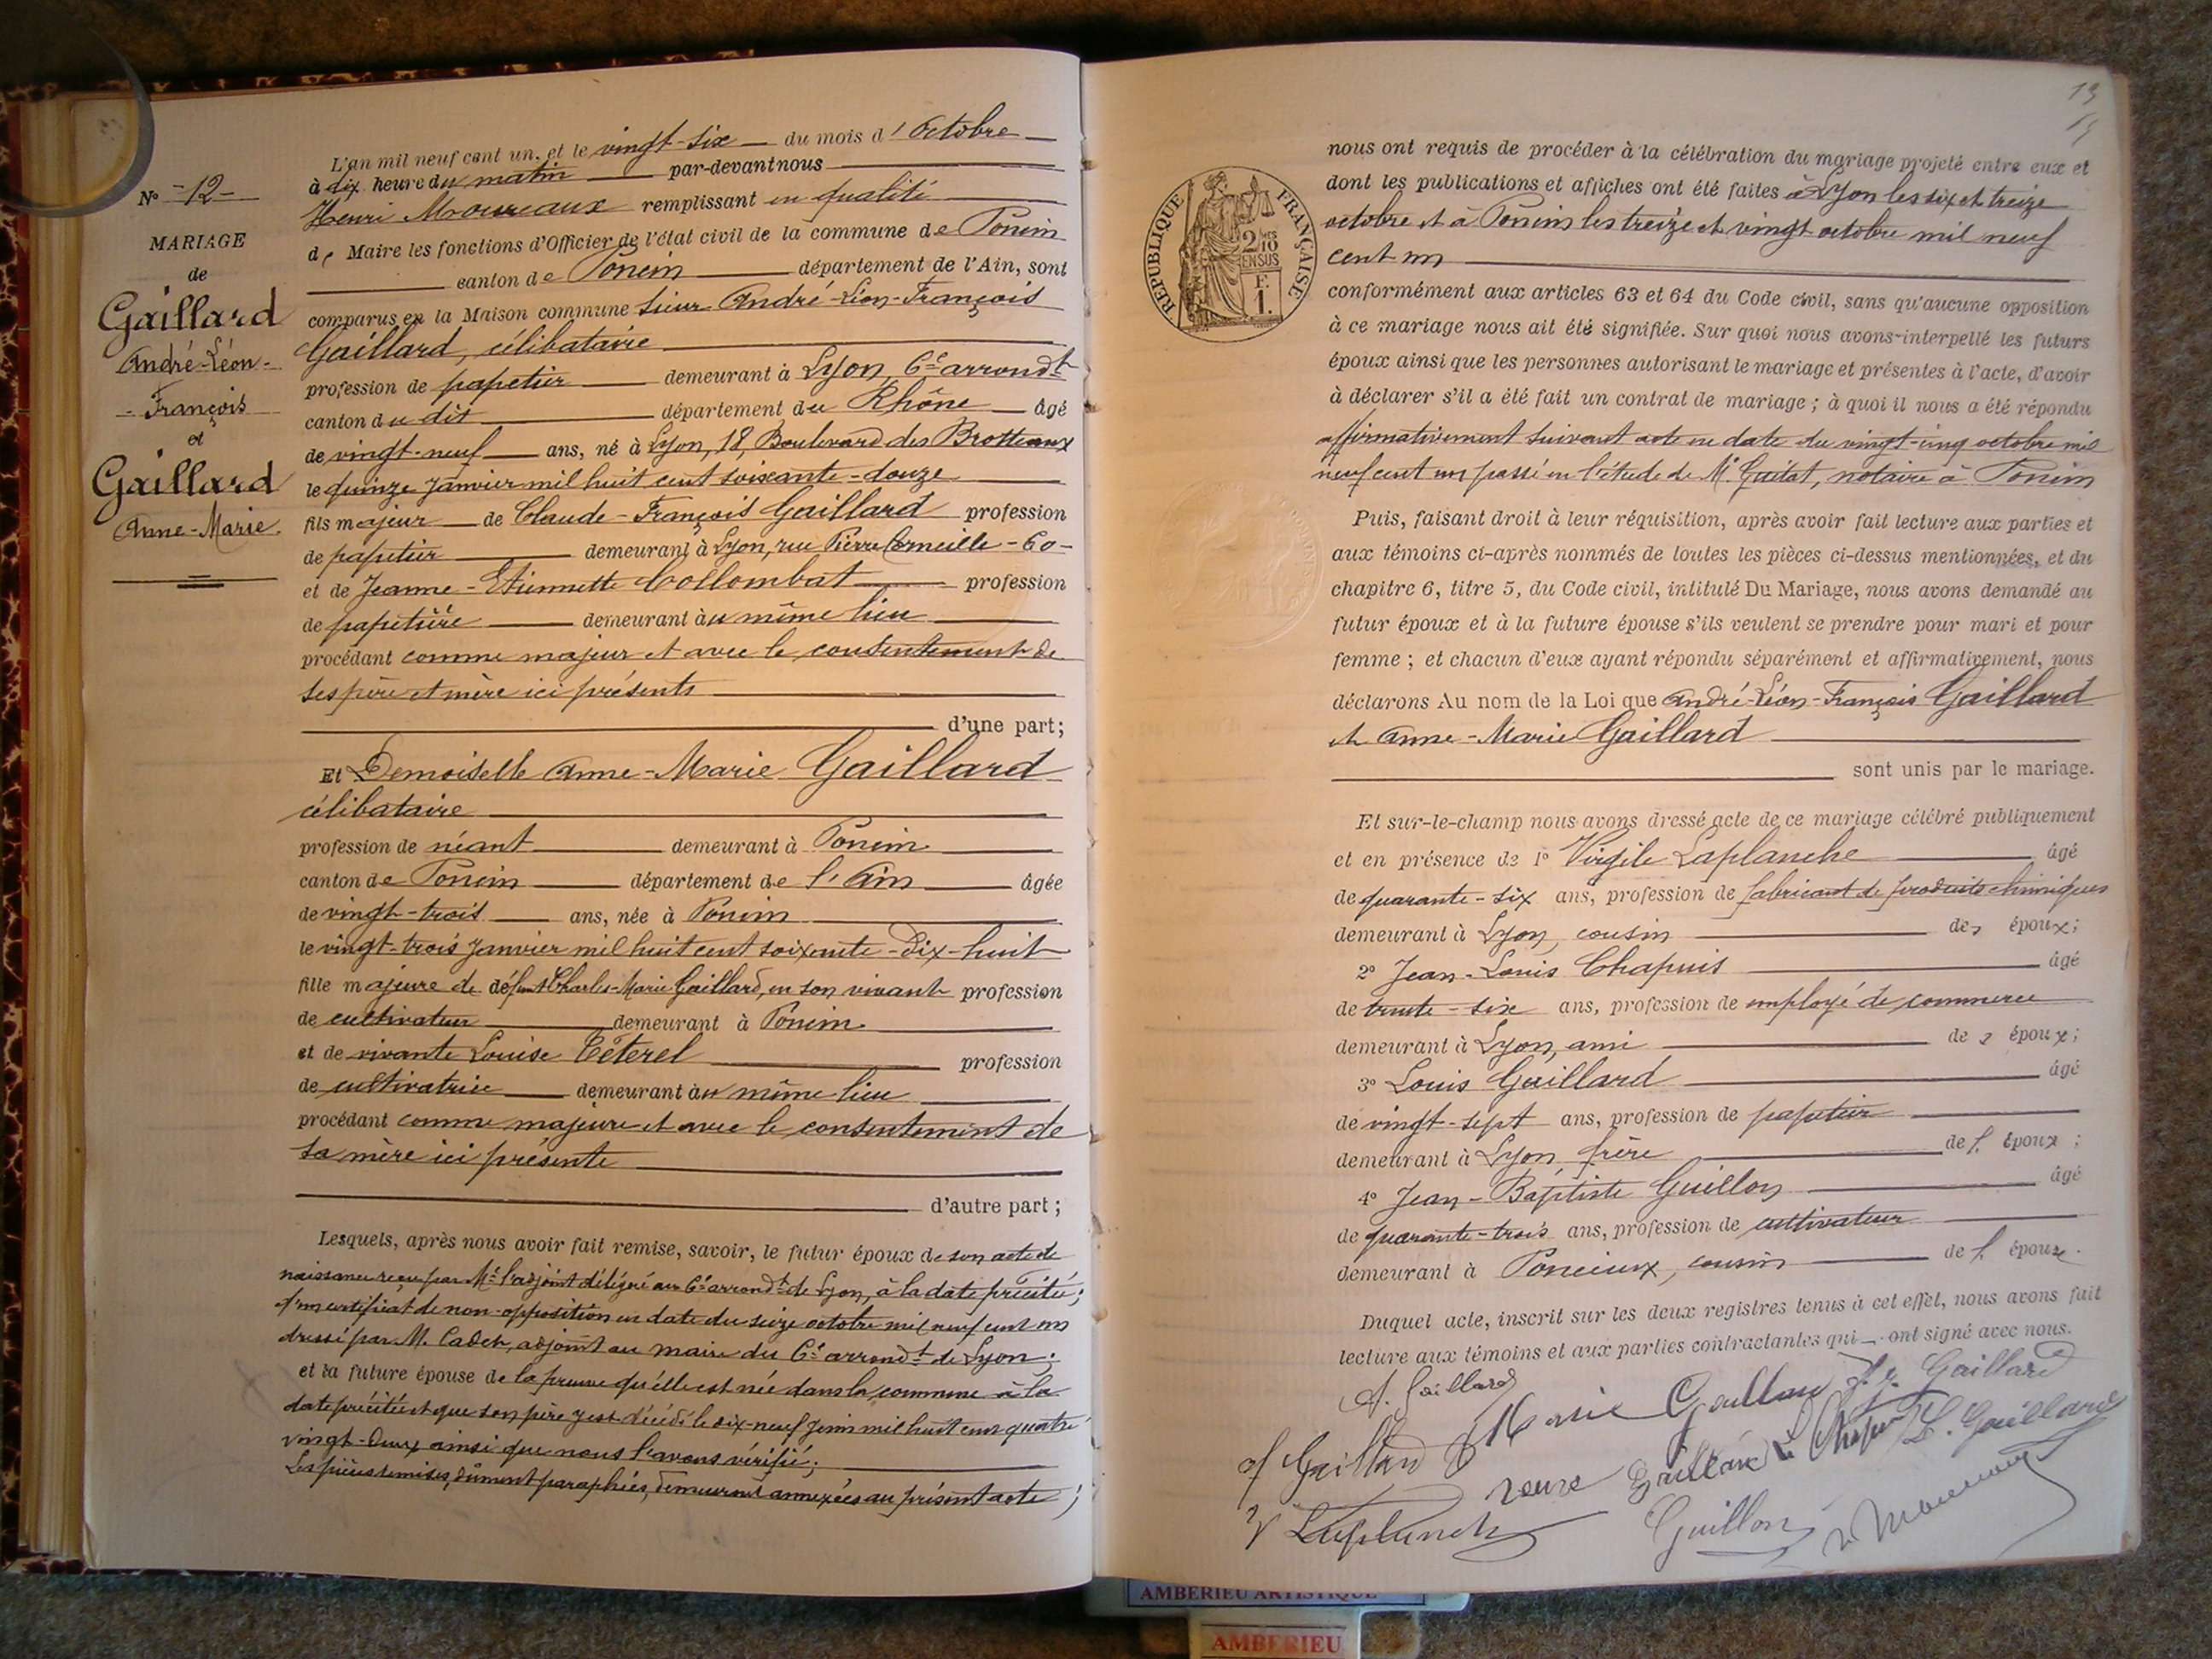 N° -12-
MARIAGE
de
Gaillard
André-Léon-
- François
et
Gaillard
Anne-Marie.
L'an mil neuf cent un, et le vingt-six du mois d'Octobre
à dix heure du matin par-devant nous
Henri Moureaux remplissant en qualité
de Maire les fonctions d'Officier de l'état civil de la commune de Poncin
canton de Poncin département de l'Ain, sont
comparus en la Maison commune Sieur André-Léon-François
Gaillard, célibataire
profession de papetier demeurant à Lyon, 6e arrondt
canton du dit département du Rhône âgé
de vingt-neuf ans, né à Lyon, 18, Boulevard des Brotteaux
le quinze Janvier mil huit cent soixante-douze
fils majeur de Claude-François Gaillard profession
de papetier demeurant à Lyon, rue Pierre Corneille -60-
et de Jeanne-Etiennette Collombat profession
de papetière demeurant au même lieu
procédant comme majeur et avec le consentement de
ses père et mère ici présents
d'une part;
Et Demoiselle Anne-Marie Gaillard
célibataire
profession de néant demeurant à Poncin
canton de Poncin département de l'Ain âgée
de vingt-trois ans, née à Poncin
le vingt-trois Janvier mil huit cent soixante-dix-huit
fille majeure de défunt Charles-Marie Gaillard, en son vivant profession
de cultivateur demeurant à Poncin
et de vivante Louise Téterel profession
de cultivatrice demeurant au même lieu
procédant comme majeure et avec le consentement de
sa mère ici présente
d'autre part;
Lesquels, après nous avoir fait remise, savoir, le futur époux de son acte de
naissance reçu par Mr l'adjoint délégué au 6e arrondt de Lyon, à la date précitée;
d'un certificat de non-opposition en date du seize octobre mil neuf cent un
dressé par M. Cadet, adjoint au maire du 6e arrondt de Lyon;
et la future épouse de la preuve qu'elle est née dans la commune à la
date précitée et que son père y est décédé le dix-neuf Juin mil huit cent quatre
vingt-deux ainsi que nous l'avons vérifié;
Les pièces remises, dûment paraphées, demeurent annexées au présent acte;
13
RÉPUBLIQUE FRANÇAISE
2/10
EN SUS
F.
1.
nous ont requis de procéder à la célébration du mariage projeté entre eux et
dont les publications et affiches ont été faites à Lyon les six et treize
octobre et à Poncin les treize et vingt octobre mil neuf
cent un
conformément aux articles 63 et 64 du Code civil, sans qu'aucune opposition
à ce mariage nous ait été signifiée. Sur quoi nous avons-interpellé les futurs
époux ainsi que les personnes autorisant le mariage et présentes à l'acte, d'avoir
à déclarer s'il a été fait un contrat de mariage; à quoi il nous a été répondu
affirmativement suivant acte en date du vingt-cinq octobre mil
neuf cent un passé en l'étude de Me notaire à Poncin
Puis, faisant droit à leur réquisition, après avoir fait lecture aux parties et
aux témoins ci-après nommés de toutes les pièces ci-dessus mentionnées, et du
chapitre 6, titre 5, du Code civil, intitulé Du Mariage, nous avons demandé au
futur époux et à la future épouse s'ils veulent se prendre pour mari et pour
femme; et chacun d'eux ayant répondu séparément et affirmativement, nous
déclarons Au nom de la Loi que André-Léon-François Gaillard
et Anne-Marie Gaillard
sont unis par le mariage.
Et sur-le-champ nous avons dressé acte de ce mariage célébré publiquement
et en présence de 1° Virgile Laplanche âgé
de quarante-six ans, profession de fabricant de produits chimiques
demeurant à Lyon, cousin des époux;
2° Jean-Louis Chapuis âgé
de trente-six ans, profession de employé de commerce
demeurant à Lyon, ami des époux;
3° Louis Gaillard âgé
de vingt-sept ans, profession de papetier
demeurant à Lyon, frère de l'époux;
4° Jean-Baptiste Guillon âgé
de quarante-trois ans, profession de cultivateur
demeurant à Poncieux, cousin de l'épouse.
Duquel acte, inscrit sur les deux registres tenus à cet effet, nous avons fait
lecture aux témoins et aux parties contractantes qui ont signé avec nous.
A. Gaillard
Marie Gaillard
Gaillard
Gaillard
veuve Gaillard
L. Chapuis
L. Gaillard
V Laplanche
Guillon
Moureaux
AMBERIEU ARTISTIQUE
AMBERIEU